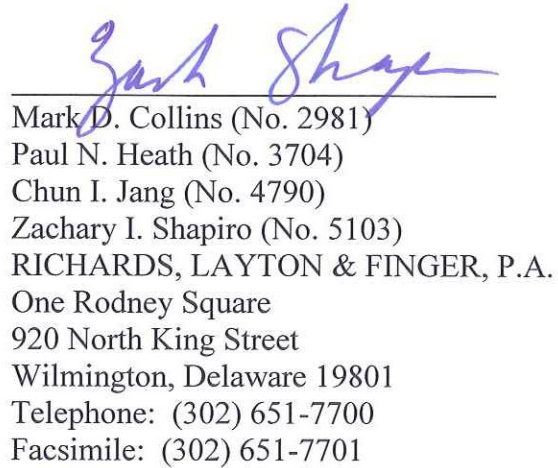 Zach Shap
Mark D. Collins (No. 2981)
Paul N. Heath (No. 3704)
Chun I. Jang (No. 4790)
Zachary I. Shapiro (No. 5103)
RICHARDS, LAYTON & FINGER, P.A.
One Rodney Square
920 North King Street
Wilmington, Delaware 19801
Telephone: (302) 651-7700
Facsimile: (302) 651-7701